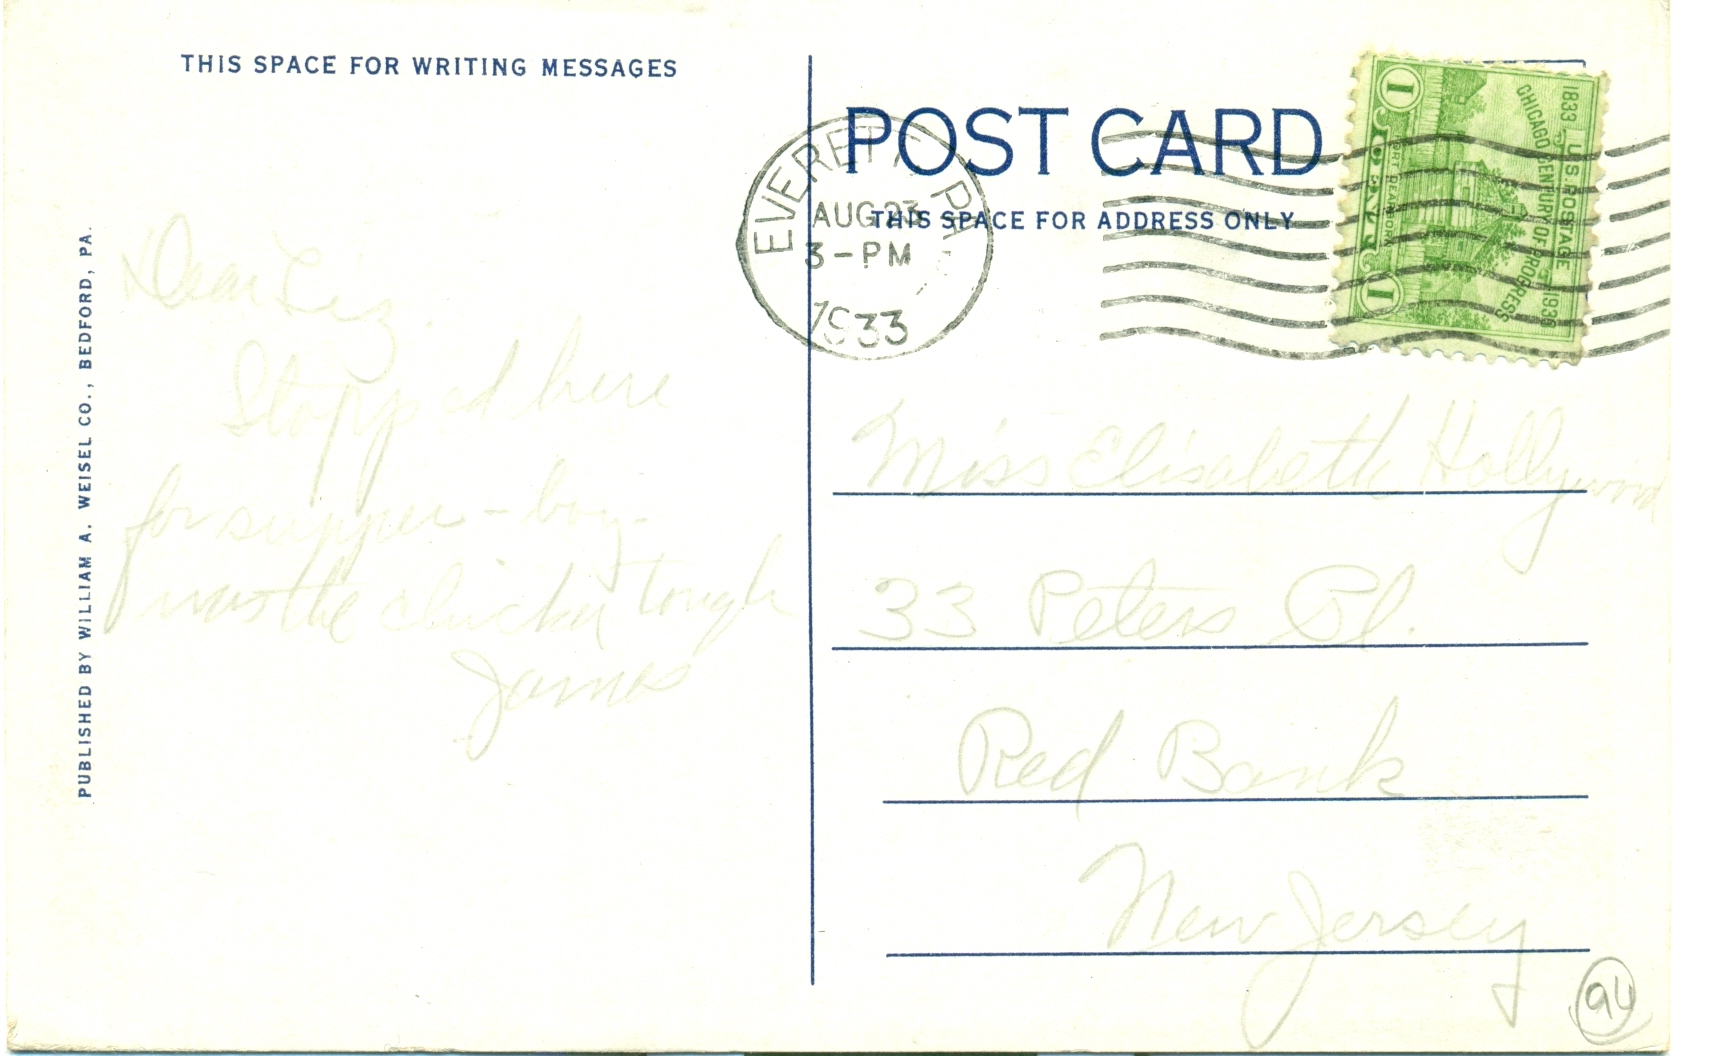 THIS SPACE FOR WRITING MESSAGES
Dear Liz.
Stopped here
for supper - boy -
was the chicken tough
James
PUBLISHED BY WILLIAM A. WEISEL CO., BEDFORD, PA.
POST CARD
THIS SPACE FOR ADDRESS ONLY
EVERETT PA.
AUG 23
3-PM
1933
1833 U.S. POSTAGE 1933
CHICAGO CENTURY OF PROGRESS
FORT DEARBORN
1
1
Miss Elisabeth Hollywood
33 Peters Pl.
Red Bank
New Jersey
94